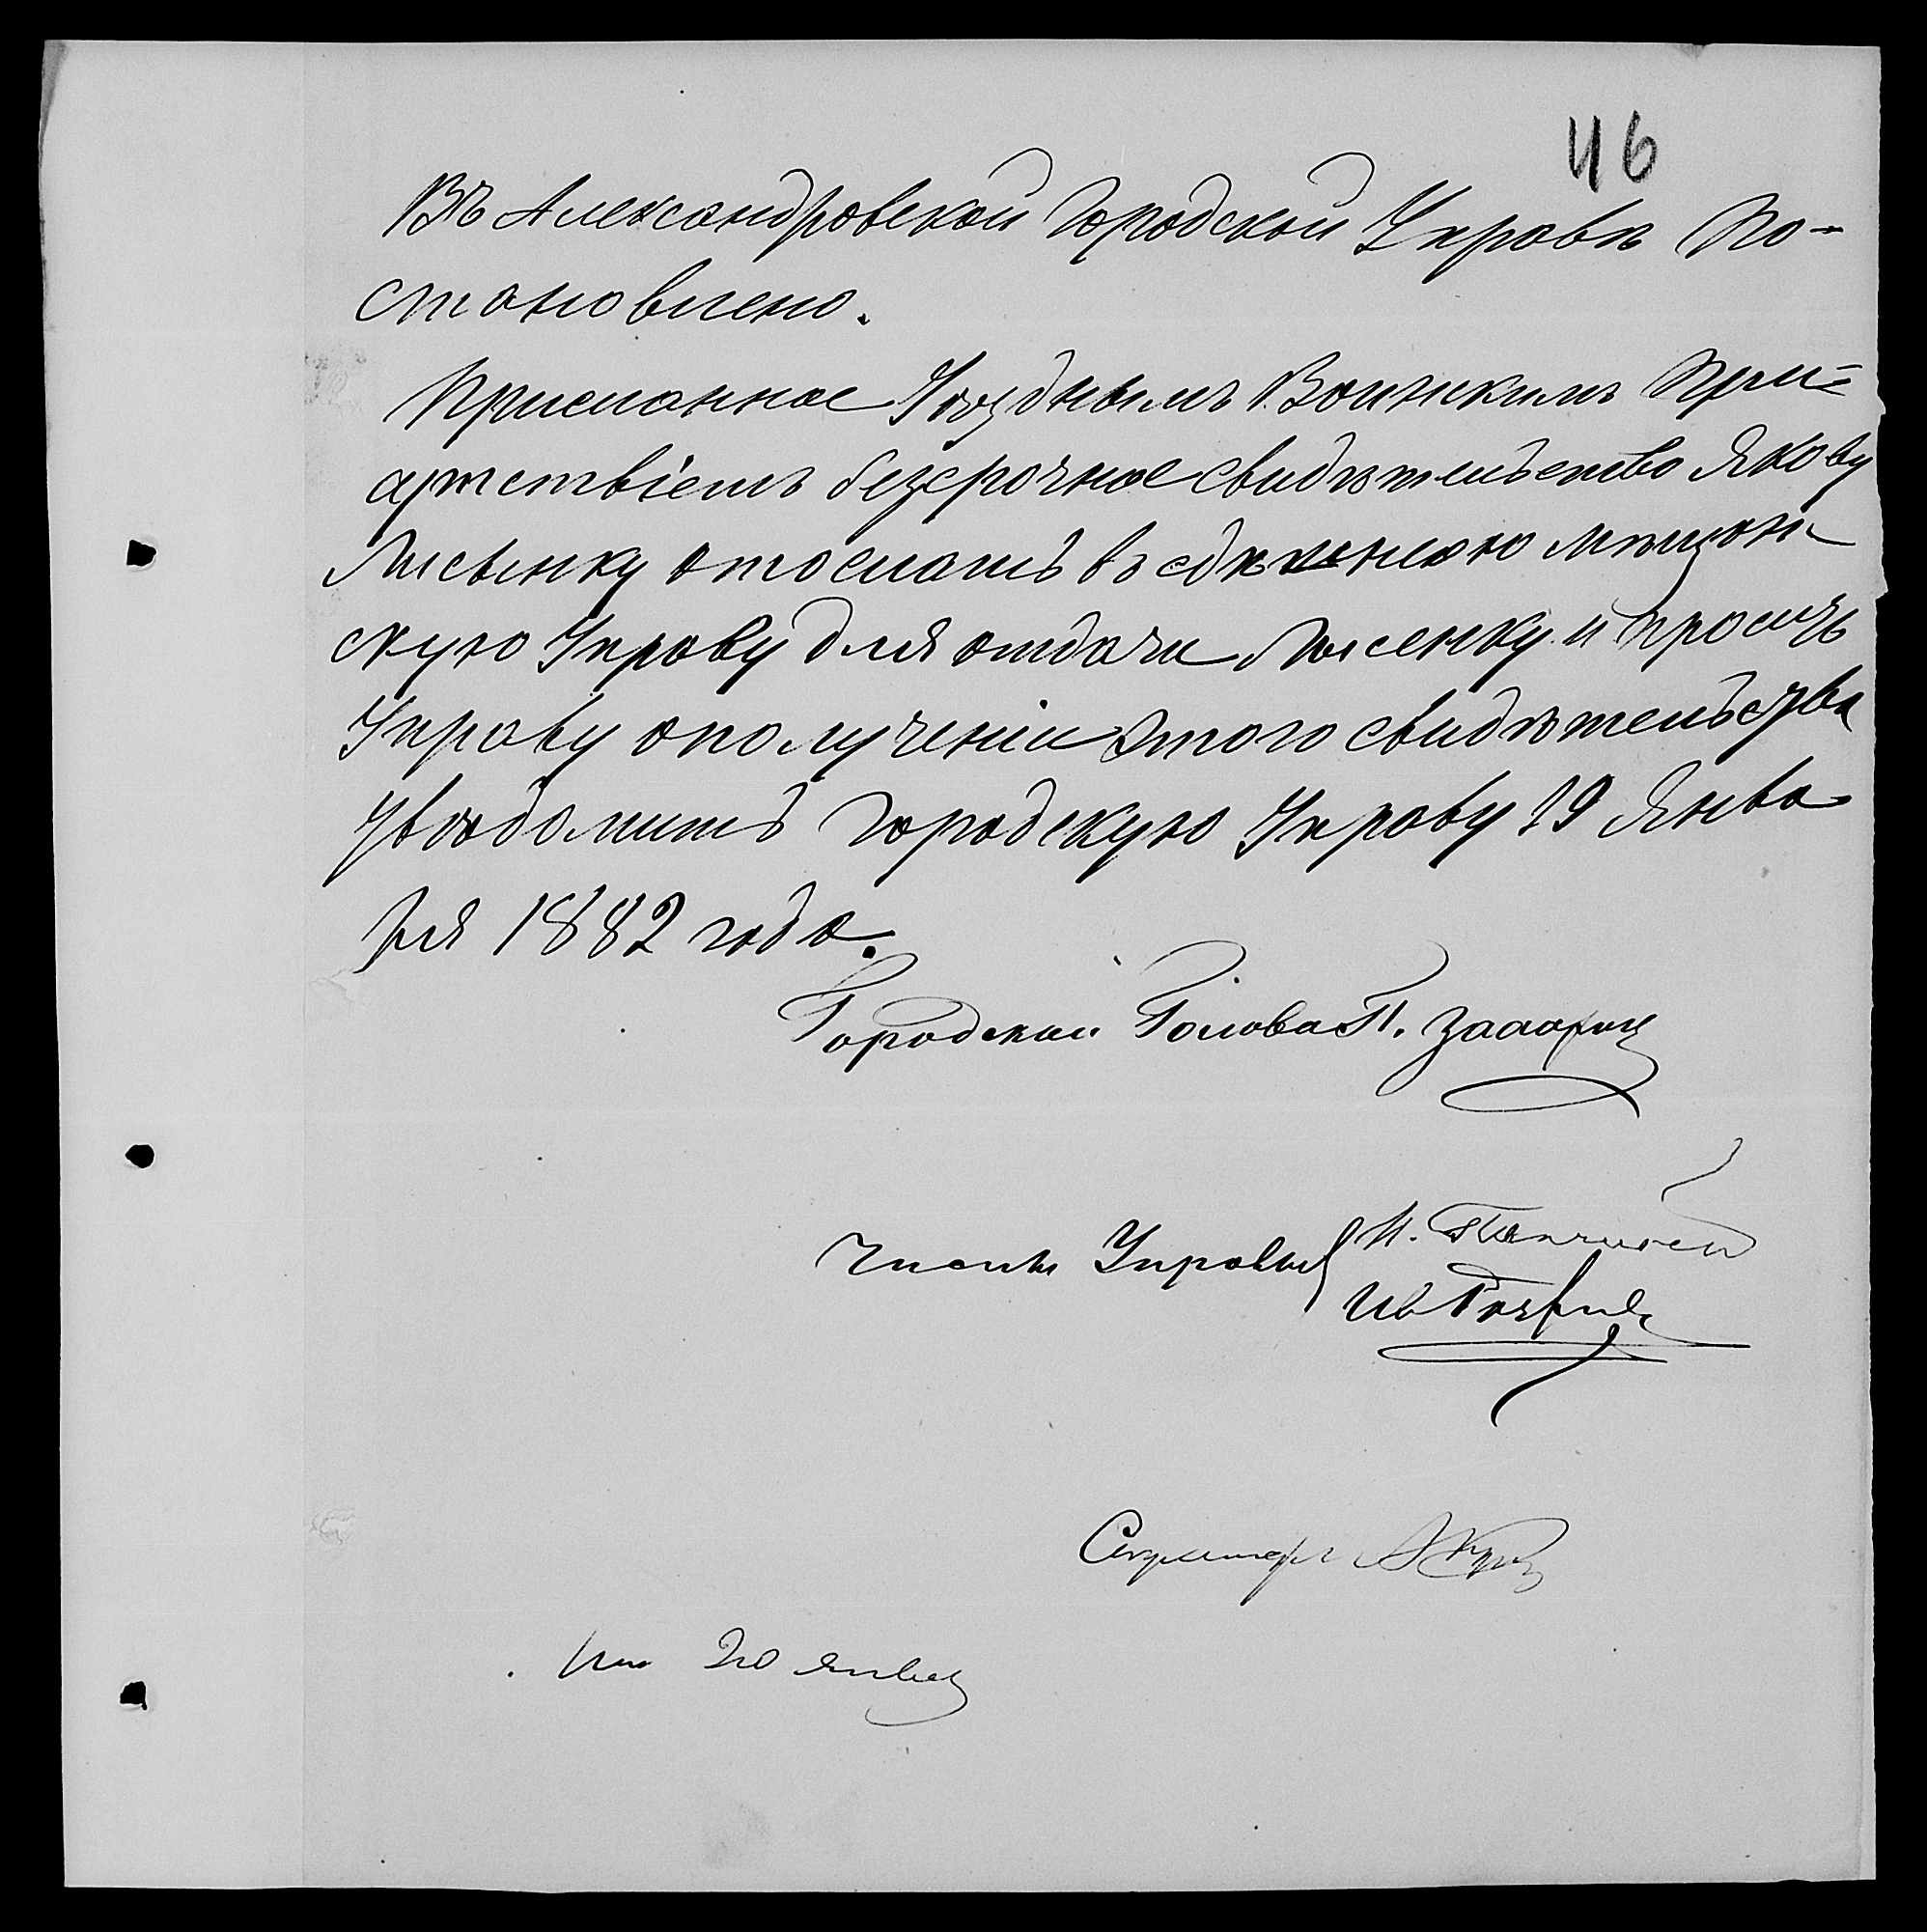 46
Въ Александровской Городской Управѣ По-
становлено.
Присланное Уѣзднымъ Воинскимъ При-
сутствіемъ безсрочное свидѣтельство Якову
Лысенку отослать въ здѣшнюю мѣщан-
скую Управу для отдачи Лысенку и просить
Управу о полученіи этого свидѣтельства
увѣдомить Городскую Управу 19 Янва
ря 1882 года.
Городской Голова П.
Члены Управы И.
Секретарь
20 января